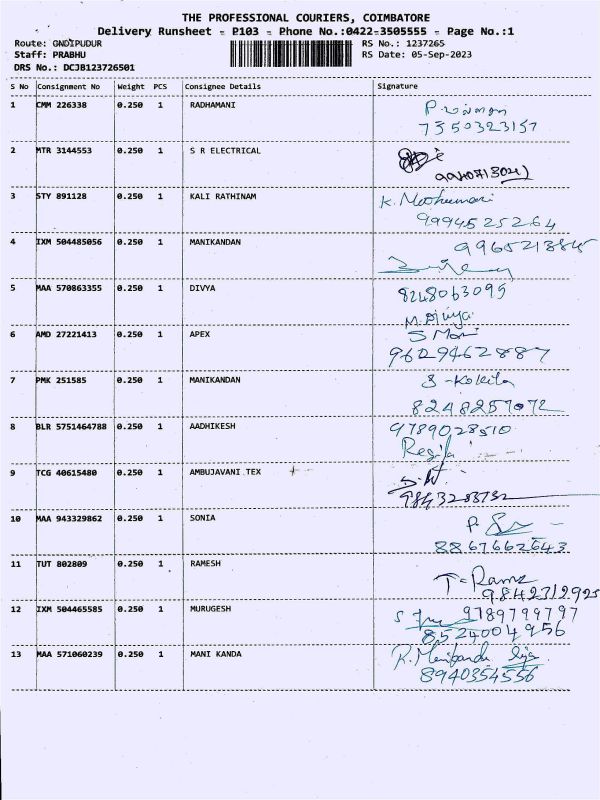 THE PROFESSIONAL COURIERS, COIMBATORE
Delivery Runsheet - P103 - Phone No.:0422-3505555 - Page No.:1
Route: GNDIPUDUR RS No.: 1237265
Staff: PRABHU RS Date: 05-Sep-2023
DRS No.: DCJB123726501
S No Consignment No Weight PCS Consignee Details Signature
1 CMM 226338 0.250 1 RADHAMANI
7350323157
2 MTR 3144553 0.250 1 S R ELECTRICAL
3 STY 891128 0.250 1 KALI RATHINAM K.
9994525264
4 IXM 504485056 0.250 1 MANIKANDAN 9965213845
5 MAA 570863355 0.250 1 DIVYA 8248063095
M. Divya
6 AMD 27221413 0.250 1 APEX S Mani
9629462887
7 PMK 251585 0.250 1 MANIKANDAN S-Kokila
8248257072
8 BLR 5751464788 0.250 1 AADHIKESH 9789028510
Regila
9 TCG 40615480 0.250 1 AMBUJAVANI TEX
9843283732
10 MAA 943329862 0.250 1 SONIA P.
8867662643
11 TUT 802809 0.250 1 RAMESH
T-Rams
9842312925
12 IXM 504465585 0.250 1 MURUGESH S 9789799797
8524004956
13 MAA 571060239 0.250 1 MANI KANDA R.
8940354556